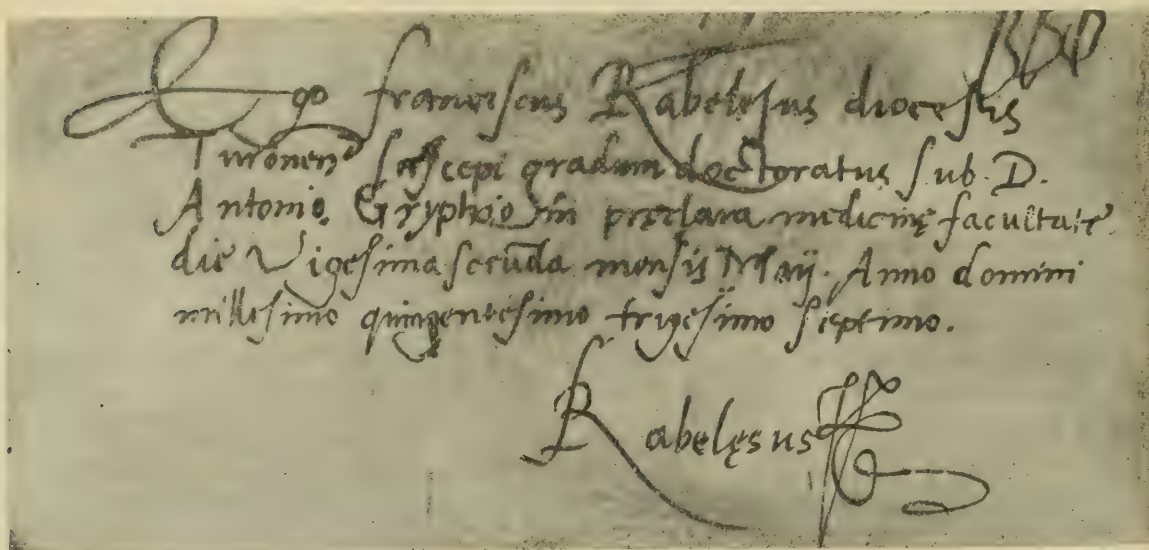 Ego franciscus Rabelęsus diocesis
Turonen suscepi gradum doctoratus sub. D.
Antonio. Gryphio in pręclara medicinę facultate.
die Vigesima secūda mensis Maij. Anno domini
millesimo quingentesimo trigesimo septimo.
Rabelęsus